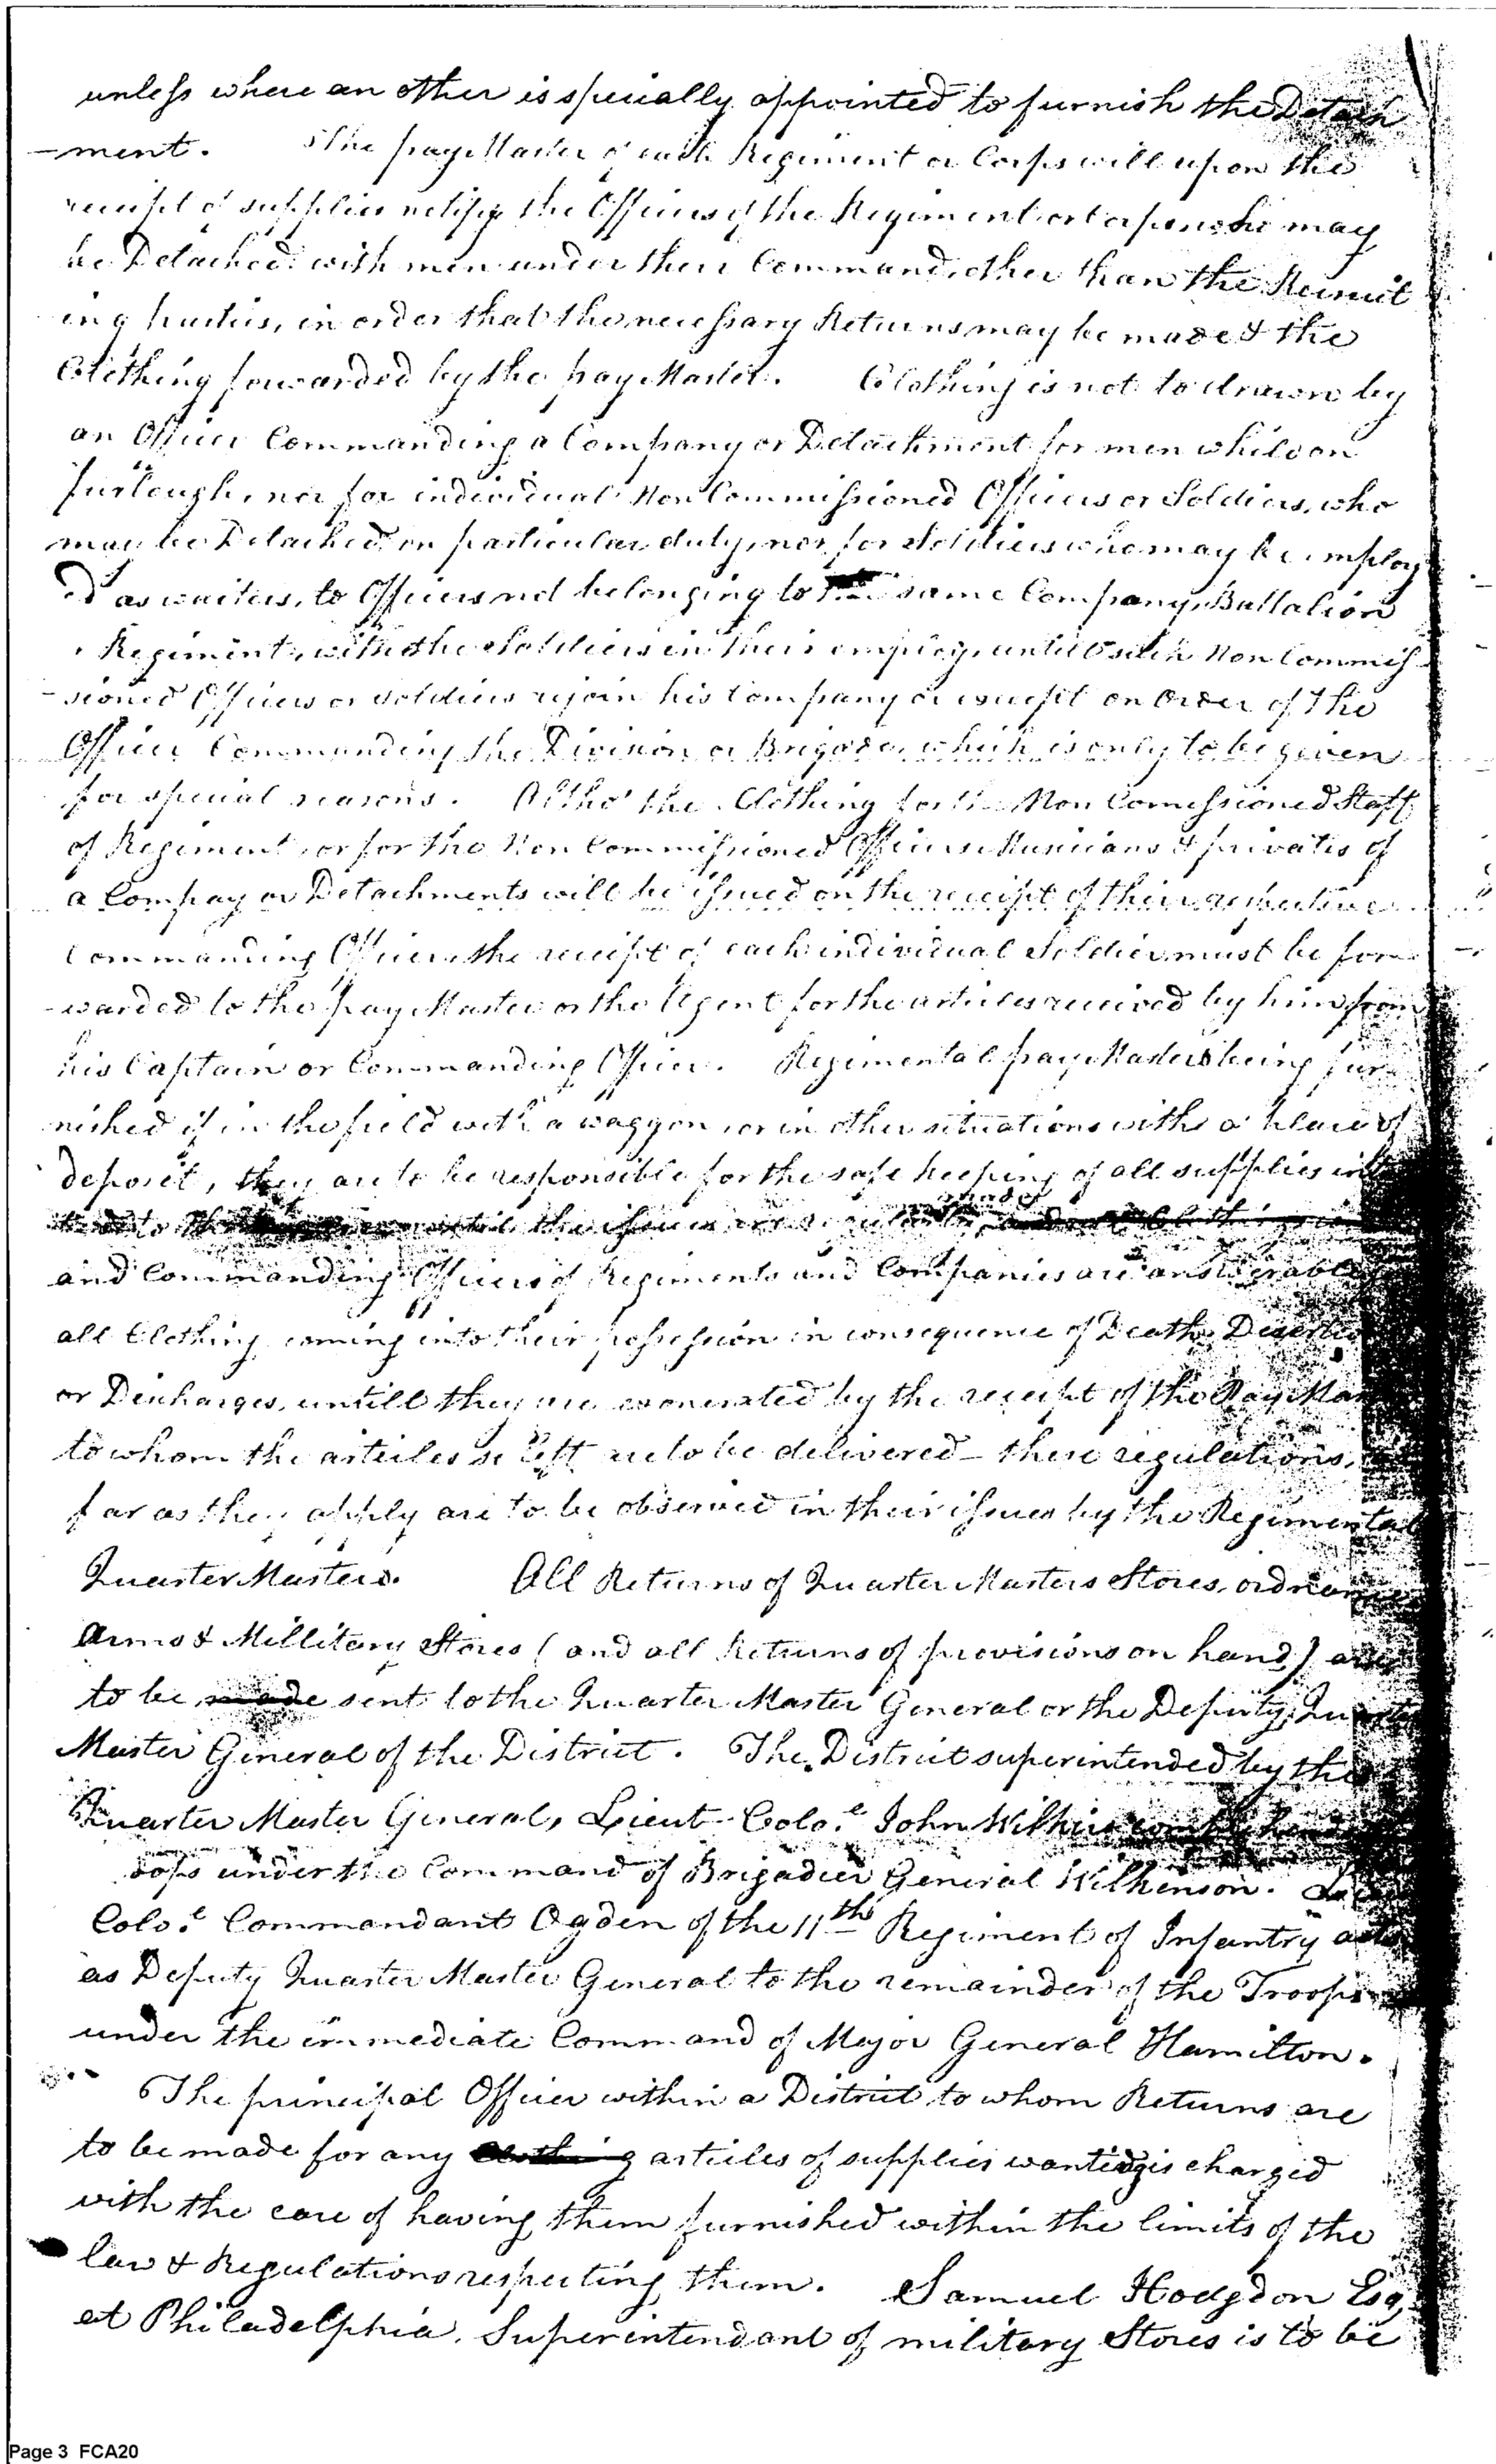 unless where an other is specially appointed to furnish the Detach
-ment. The payMaster of each Regiment or Corps will upon the
receipt of supplies notify the Officers of the Regiment or Corps who may
be Detached with men under their Command, other than the Recruit
ing parties, in order that the necessary Returns may be made & the
Clothing forwarded by the payMaster. Clothing is not to drawn by
an Officer Commanding a Company or Detachment for men while on
furlough, nor for individual Non Commissioned Officers or Soldiers, who
may be Detached on particular duty, nor for Soldiers who may be employ
ed as waiters, to Officers not belonging to the same Company, Battalion
Regiment, with the Soldiers in their employ, untill such Non Commis
-sioned Officers or Soldiers rejoin his Company or except on Order of the
Officer Commanding the Division or Brigade, which is only to be given
for special reasons. Altho' the Clothing for the Non Comissioned Staff
of Regiment, or for the Non Commissioned Officers Musicians & privates of
a Compay or Detachments will be issued on the receipt of their respective
Commanding Officers, the receipt of each individual Soldier must be for
-warded to the payMaster or the Agent for the articles received by him from
his Captain or Commanding Officer. Regimental payMasters being fur
nished if in the field with a waggon, or in other situations with a place of
deposit, they are to be responsible for the safe keeping of all supplies
until the issues are regularly
and Commanding Officers of Regiments and Companies are answerable
all Clothing coming into their possession in consequence of Deaths Desertion
or Discharges, untill they are exonerated by the receipt of the Pay Mas
to whom the articles so left are to be delivered - these regulations,
far as they apply are to be observed in their issues by the Regimental
Quarter Masters. All Returns of Quarter Masters Stores, ordnance
Arms & Millitary Stores (and all Returns of provisions on hand) are
to be made sent to the Quarter Master General or the Deputy Quarter
Master General of the District. The District superintended by the
Quarter Master General, Lieut Colo.l John Wilkins comprehends
oops under the Command of Brigadier General Wilkinson.
Colo.l Commandant Ogden of the 11th Regiment of Infantry acts
as Deputy Quarter Master General to the remainder of the Troops
under the immediate Command of Major General Hamilton.
The principal Officer within a District to whom Returns are
to be made for any clothing articles of supplies wanted is charged
with the care of having them furnished within the limits of the
law & Regulations respecting them. Samuel Hodgdon Esq.
at Philadelphia, Superintendant of military Stores is to be
Page 3 FCA20